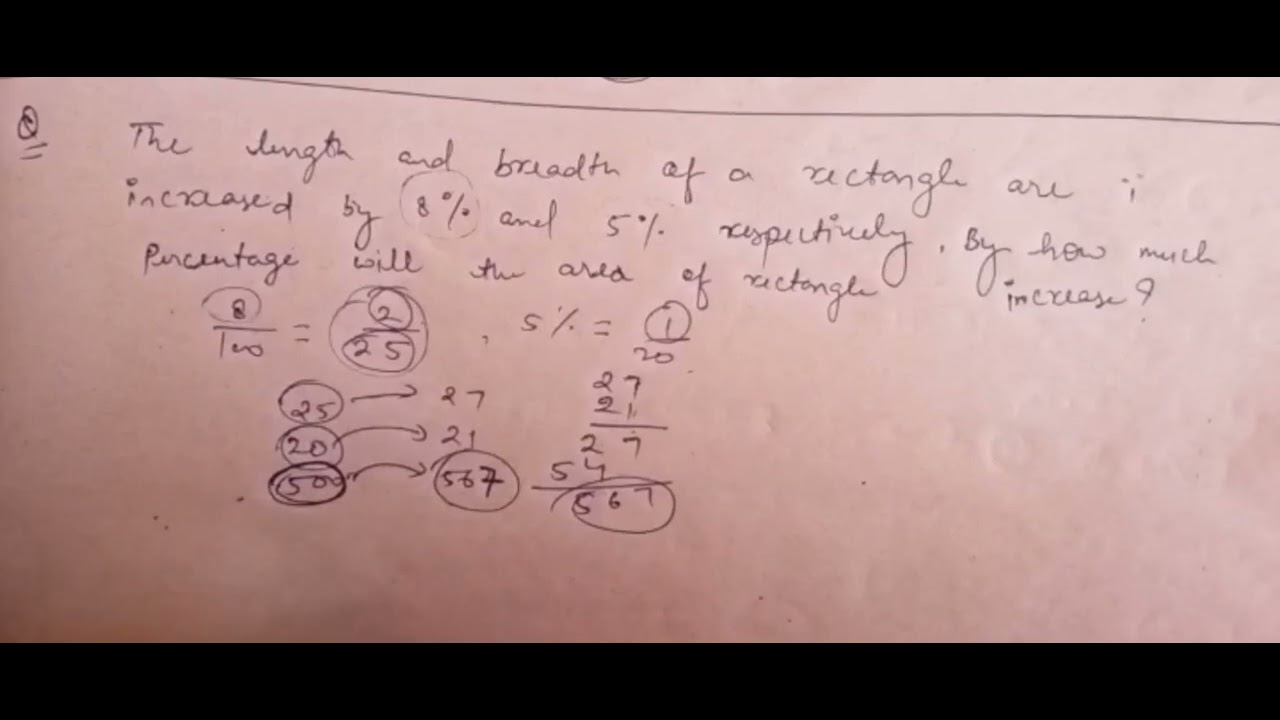 Q
The length and breadth of a rectangle are
increased by 8% and 5% respectively. By how much
Percentage will the area of rectangle increase?
8/100 = 2/25 , 5% = 1/20
25 → 27
20 → 21
500 → 567
27
21
27
54
567